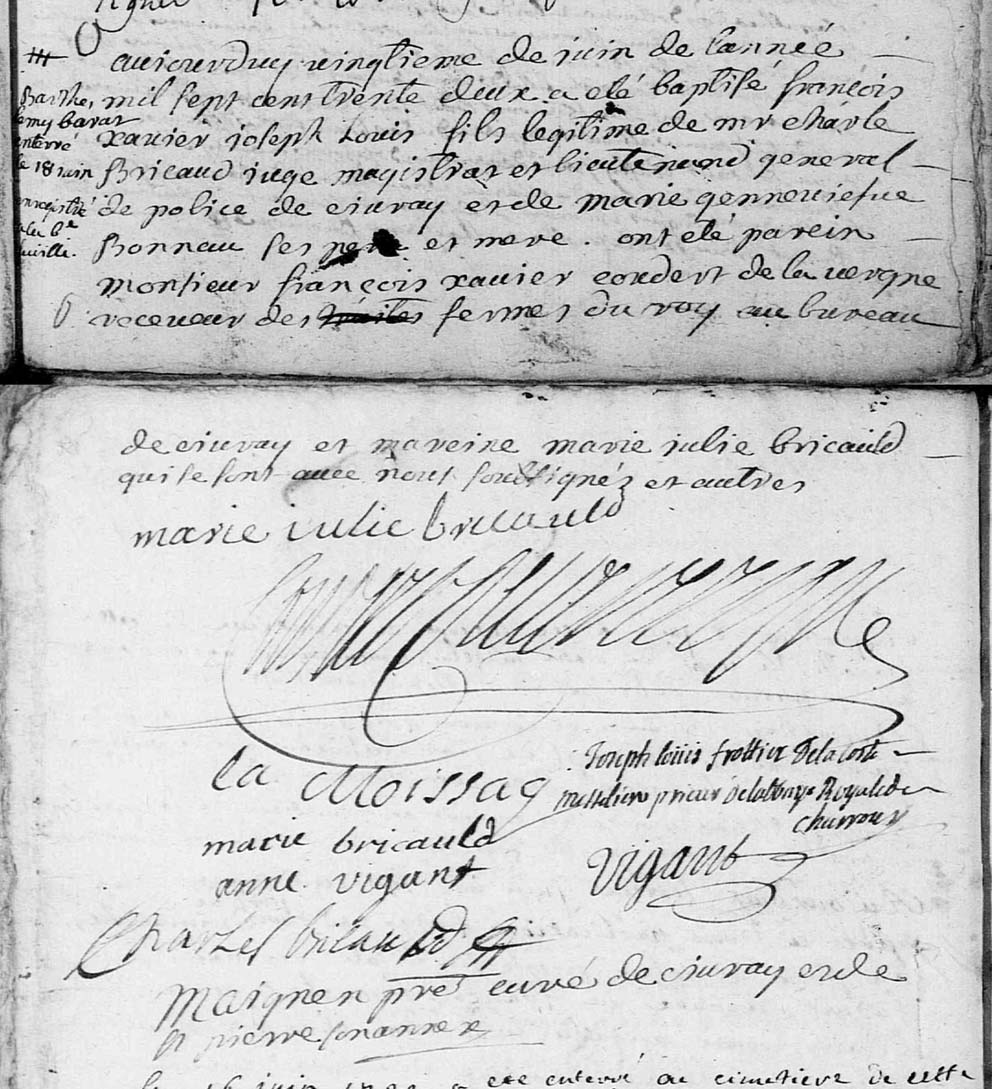 aujourduy vingtieme de juin de lannée
mil sept cent trente deux a eté baptisé françois
xavier joseph Louis fils legitime de mr charle
Bricaud juge magistrat et lieutenend general
de police de civray et de marie genneviefue
Bonnau ses pere et mere . ont eté parein
monsieur françois xavier cordert de la vergne
receveur des traites fermes du roy au bureau
Barthe,
remy barat
enterré
le 18 juin
enregistré
de civray et mareine marie julie bricauld
qui se sont avec nous soussignéz et autres
marie julie bricauld
la Moissag
Joseph louis frottier Delacoste
Messeliere prieur Delabbaye Royale de
Charroux
marie bricauld
anne vigant
Vigant
Charles bricauld
Maignen pret curé de civray et de
st pierre son annexe
le 16 juin a ete enterré au cimetiere de cette